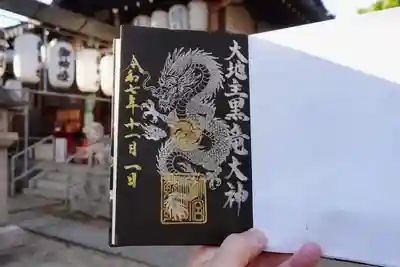 大地主黒竜大神
令和七年十一月一日
御神燈